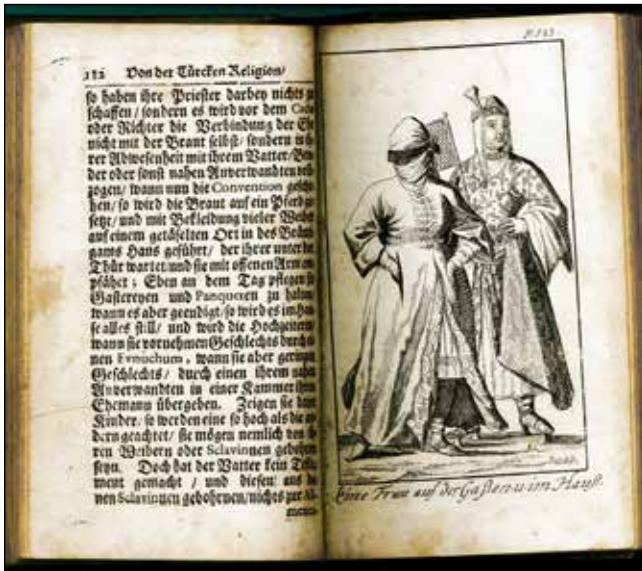 182 Von der Türcken Religion/
so haben ihre Priester darbey nichts zu
schaffen / sondern es wird vor dem
oder Richter die Verbindung der Ehe
nicht mit der Braut selbst/ sondern in ih-
rer Abwesenheit mit ihrem Vatter/ Bru-
der oder sonst nahen Anverwandten voll-
zogen/ wann nun die Convention gesche-
hen/ so wird die Braut auf ein Pferd ge-
setzt/ und mit Bekleidung vieler Weiber
auf einem getäfelten Ort in des Bräuti-
gams Haus geführt/ der ihrer unter der
Thür wartet/ und sie mit offenen Armen em-
pfähet; Eben an dem Tag pflegen sie
Gastereyen und Panqueten zu halten/
wann es aber geendigt/ so wird es im Hau-
se alles still/ und wird die Hochzeiterin/
wann sie vornehmen Geschlechts durch ei-
nen Evnuchum, wann sie aber geringen
Geschlechts / durch einen ihrem nahen
Anverwandten in einer Kammer ihrem
Ehemann übergeben. Zeigen sie dann
Kinder/ so werden eine so hoch als die an-
dern geachtet/ sie mögen nemlich von ih-
ren Weibern oder Sclavinnen gebohren
seyn. Doch hat der Vatter kein Testa-
ment gemacht / und diesen/ aus de-
nen Sclavinnen gebohrnen/ nichts zur
Eine Frau auf der Gassen u. im Hauß.